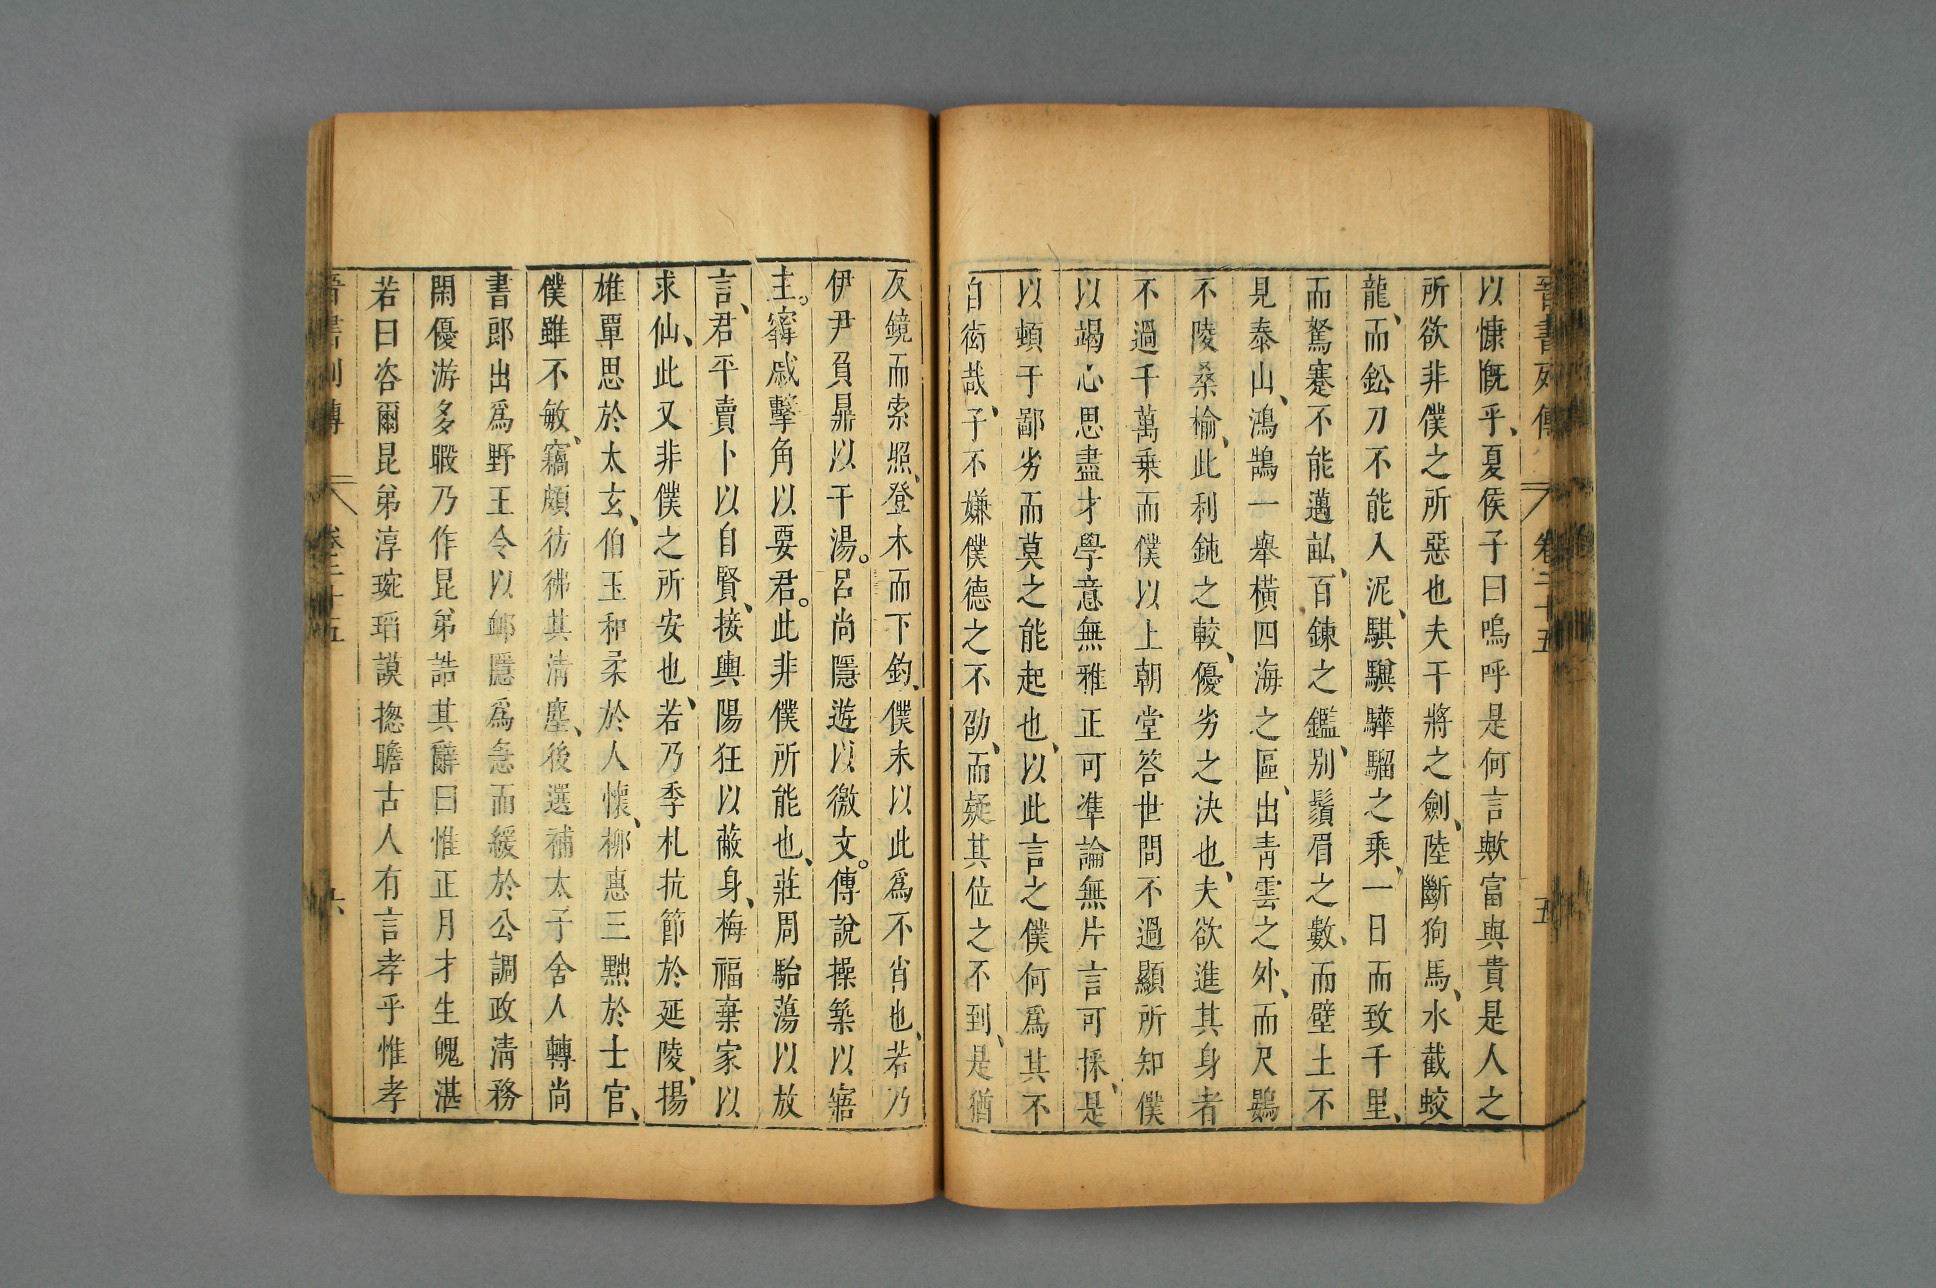 晉書列傳 卷二十五 五
以慷慨乎、夏侯子曰嗚呼是何言歟富與貴是人之
所欲非僕之所惡也夫干將之劍、陸斷狗馬、水截蛟
龍、而鈆刀不能入泥、騏驥驊騮之乘、一日而致千里、
而駑蹇不能邁畝、百鍊之鑑、别鬚眉之數、而壁土不
見泰山、鴻鵠一舉橫四海之區、出靑雲之外、而尺鷃
不陵桑榆、此利鈍之較、優劣之决也、夫欲進其身者
不過千萬乘而僕以上朝堂答世問不過顯所知僕
以竭心思盡才學意無雅正可準論無片言可採、是
以頓于鄙劣而莫之能起也、以此言之僕何爲其不
自衒哉、子不嫌僕德之不劭、而疑其位之不到、是猶
反鏡而索照、登木而下釣、僕未以此爲不肖也、若乃
伊尹負鼎以干湯。呂尚隱遊以徼文。傅說操築以寤
主。甯戚擊角以要君。此非僕所能也、莊周駘蕩以放
言、君平賣卜以自賢、接輿陽狂以蔽身、梅福棄家以
求仙、此又非僕之所安也、若乃季札抗節於延陵、揚
雄覃思於太玄、伯玉和柔於人懷、柳惠三黜於士官、
僕雖不敏、竊頗彷彿其清塵、後選補太子舍人轉尚
書郎出爲野王令以卹隱爲急而緩於公調政清務
閑優游多暇乃作昆弟誥其辭曰惟正月才生魄湛
若曰咨爾昆弟淳琬瑫謨揔瞻古人有言孝乎惟孝
晉書列傳 卷二十五 六